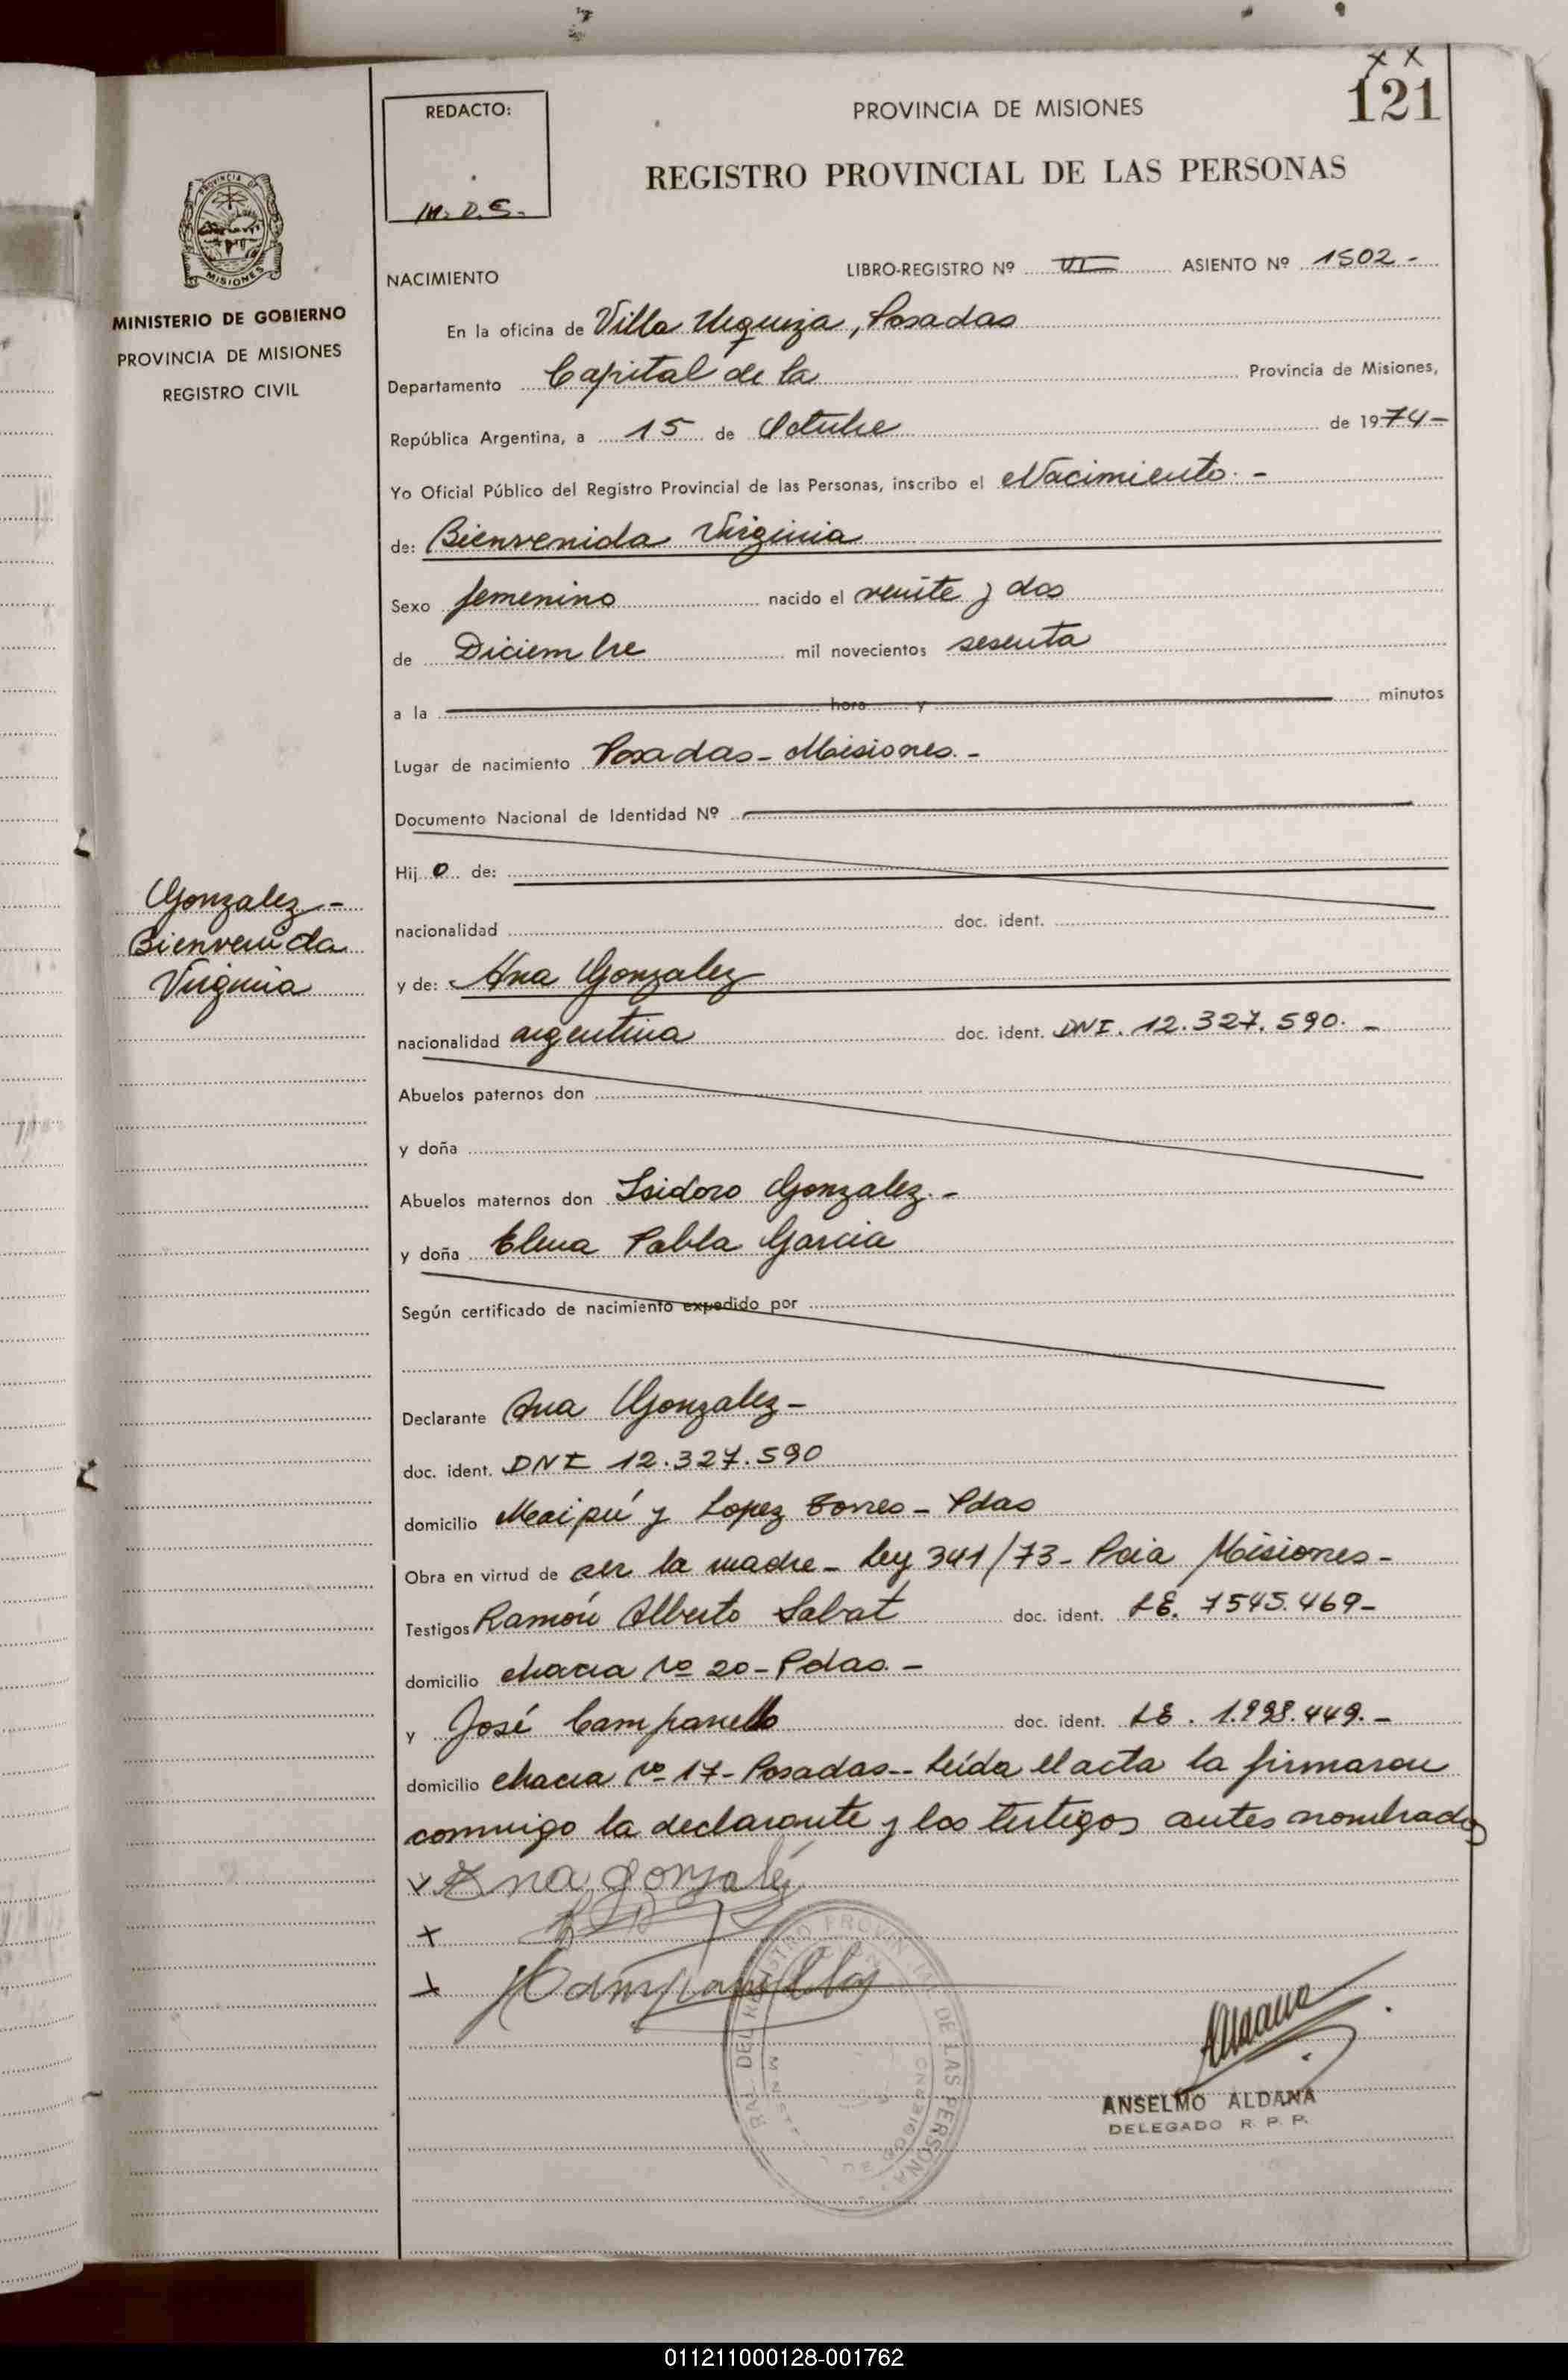 121
REDACTO:
M.D.S.
PROVINCIA DE MISIONES
REGISTRO PROVINCIAL DE LAS PERSONAS
PROVINCIA DE MISIONES
MINISTERIO DE GOBIERNO
PROVINCIA DE MISIONES
REGISTRO CIVIL
NACIMIENTO LIBRO-REGISTRO Nº VI ASIENTO Nº 1502-
En la oficina de Villa Urquiza, Posadas
Departamento Capital de la Provincia de Misiones,
República Argentina, a 15 de Octubre de 1974-
Yo Oficial Público del Registro Provincial de las Personas, inscribo el Nacimiento.-
de: Bienvenida Virginia
Sexo femenino nacido el veinte y dos
de Diciembre mil novecientos sesenta
a la hora y minutos
Lugar de nacimiento Posadas-Misiones.-
Documento Nacional de Identidad Nº
Hij o de:
nacionalidad doc. ident.
Gonzalez-
Bienvenida
Virginia
y de: Ana Gonzalez
nacionalidad argentina doc. ident. DNI. 12.327.590.-
Abuelos paternos don
y doña
Abuelos maternos don Isidoro Gonzalez.-
y doña Elena Pabla Garcia
Según certificado de nacimiento expedido por
Declarante Ana Gonzalez-
doc. ident. DNI 12.327.590
domicilio Maipú y Lopez Torres-Pdas
Obra en virtud de ser la madre-Ley 341/73-Pcia Misiones-
Testigos Ramón Alberto Sabat doc. ident. LE. 7545.469-
domicilio chacra Nº 20-Pdas.-
y José Campanello doc. ident. LE. 1.998.449.-
domicilio chacra Nº 17-Posadas-- Leída el acta la firmaron
conmigo la declarante y los testigos antes nombrados
Ana gonzalez
ANSELMO ALDANA
DELEGADO R. P. P.
011211000128-001762